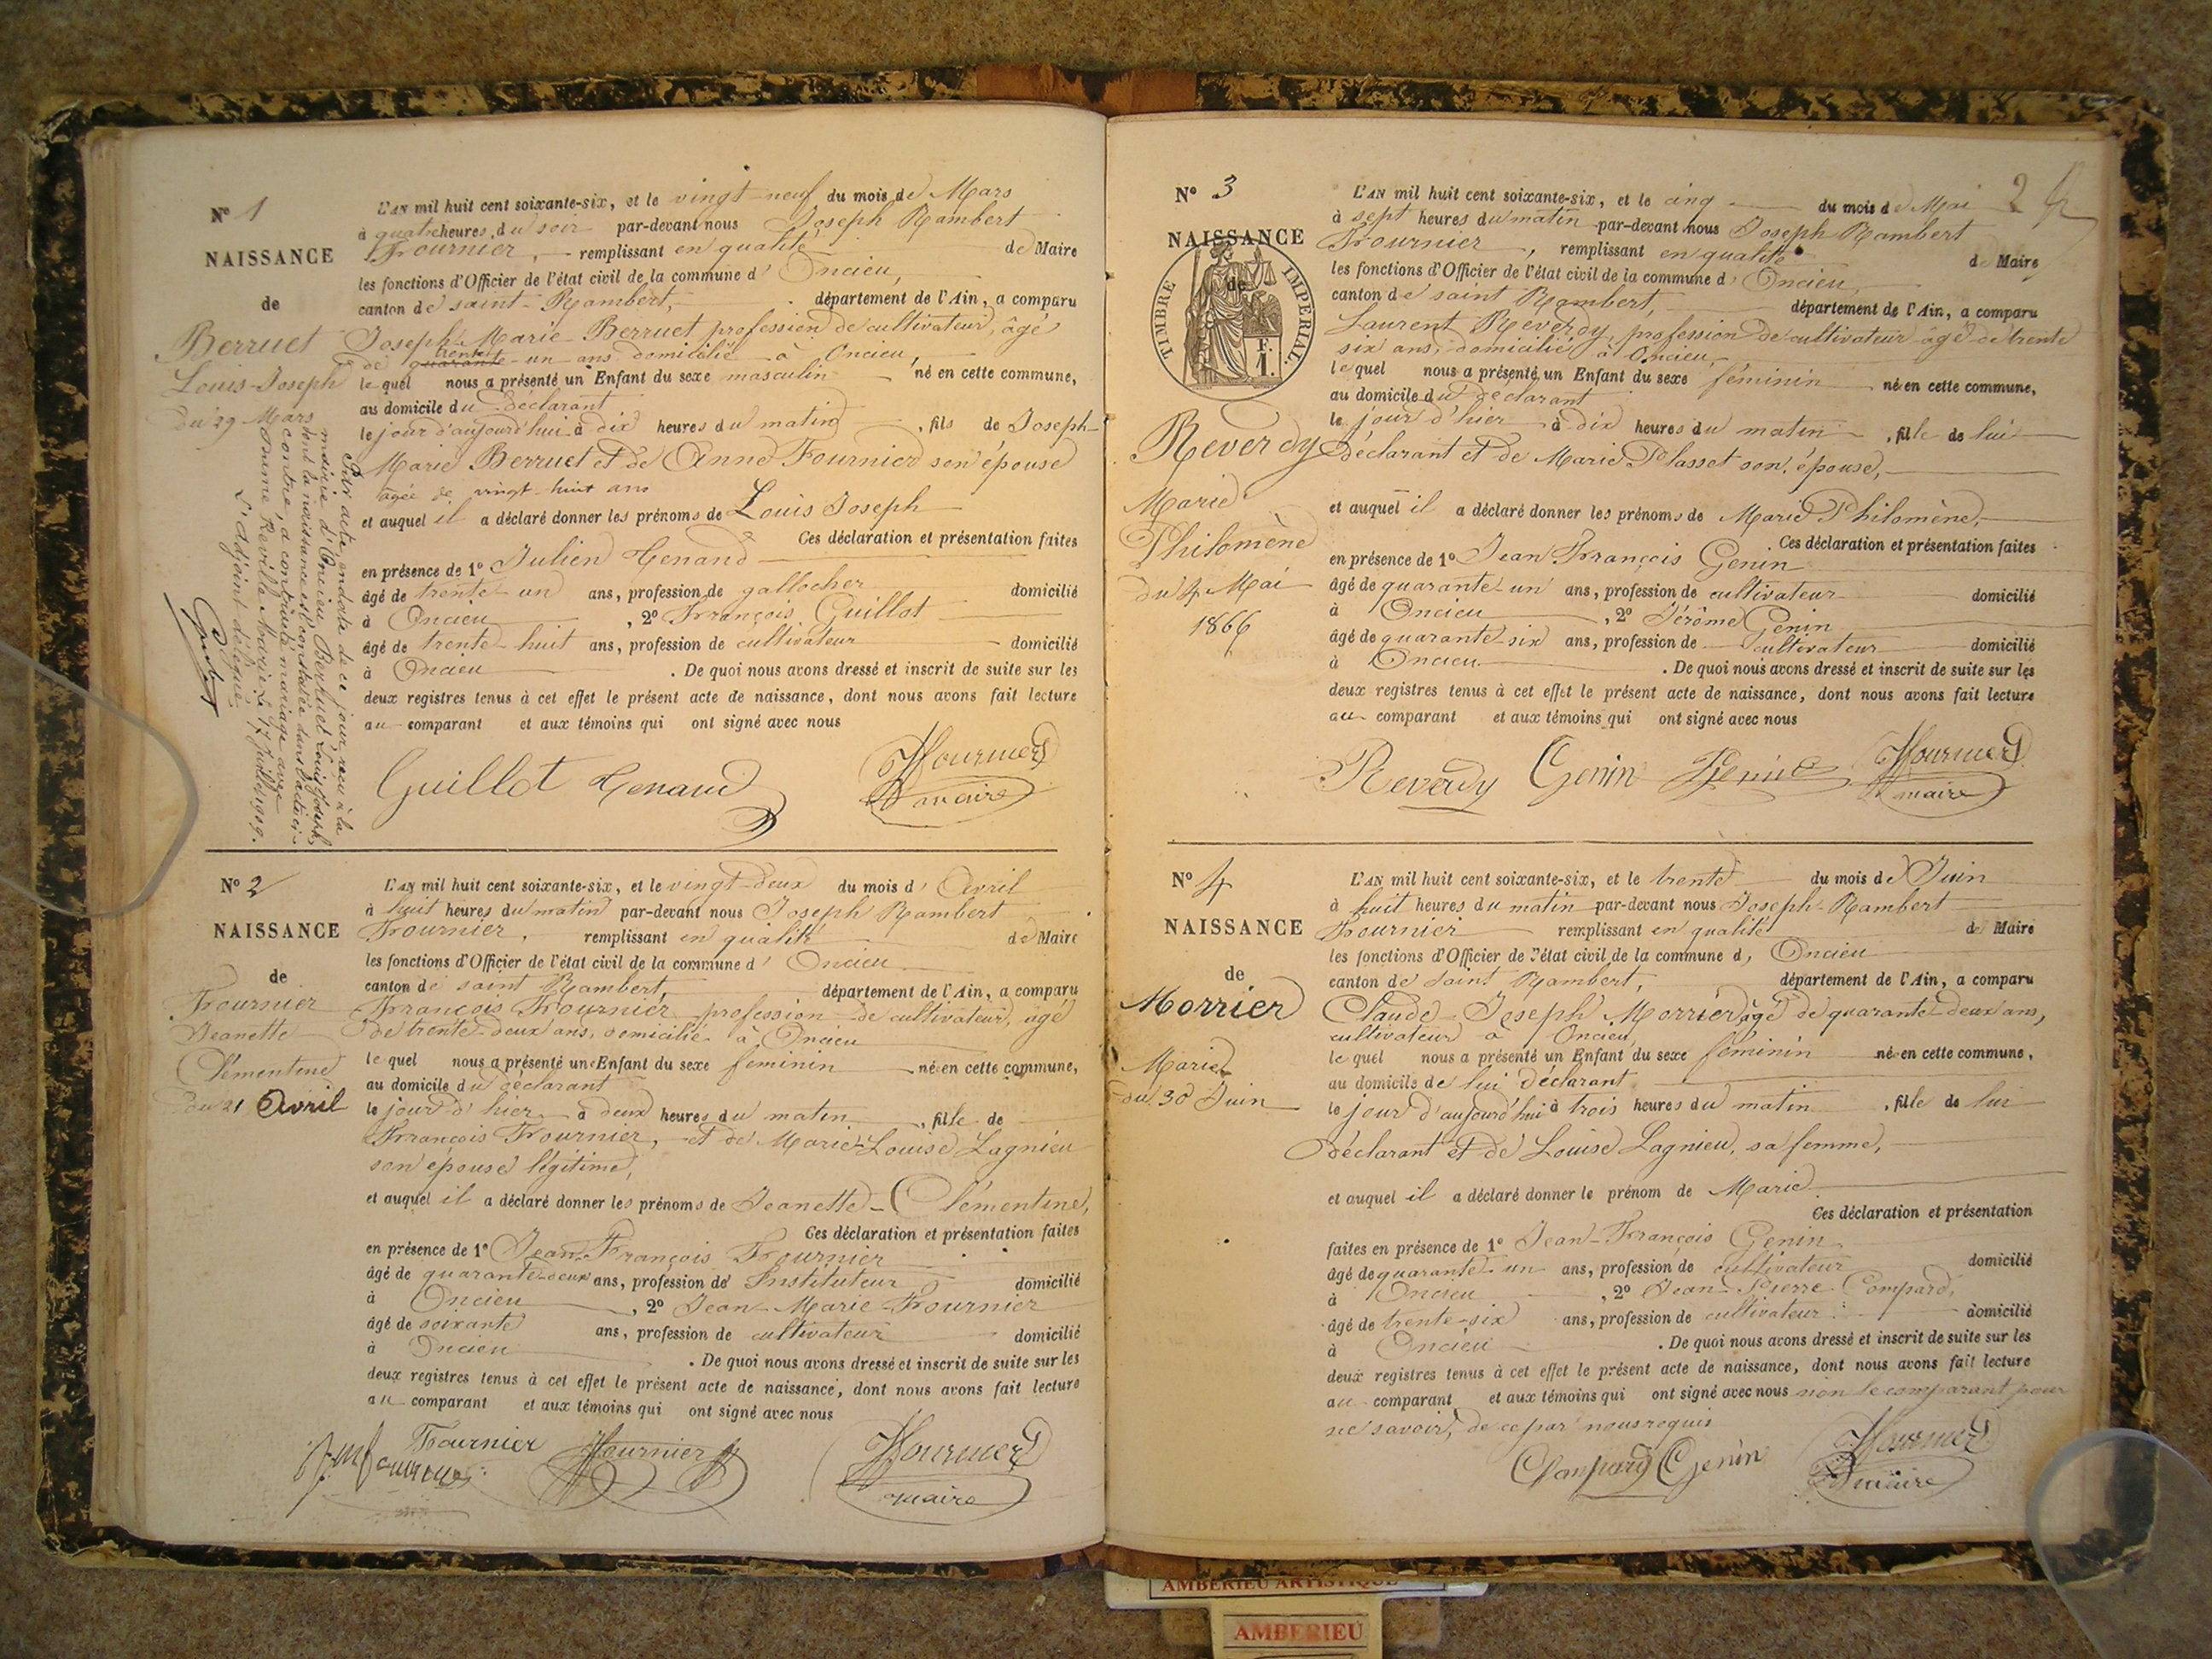 N° 1
NAISSANCE
de
Berruet
Louis-Joseph
du 29 Mars
L'AN mil huit cent soixante-six, et le vingt-neuf du mois de Mars
à quatre heures du soir par-devant nous Joseph Rambert
Fournier, remplissant en qualité de Maire
les fonctions d'Officier de l'état civil de la commune d'Oncieu,
canton de saint-Rambert, département de l'Ain, a comparu
Joseph-Marie Berruet profession de cultivateur, âgé
trente
de quarante-un ans domicilié à Oncieu,
lequel nous a présenté un Enfant du sexe masculin né en cette commune,
au domicile du déclarant
le jour d'aujourd'hui à dix heures du matin, fils de Joseph-
Marie Berruet et de Anne Fournier son épouse
âgée de vingt-huit ans
et auquel il a déclaré donner les prénoms de Louis Joseph
Ces déclaration et présentation faites
en présence de 1° Julien
âgé de trente-un ans, profession de gallocher domicilié
à Oncieu, 2° François Guillot
âgé de trente-huit ans, profession de cultivateur domicilié
à Oncieu. De quoi nous avons dressé et inscrit de suite sur les
deux registres tenus à cet effet le présent acte de naissance, dont nous avons fait lecture
au comparant et aux témoins qui ont signé avec nous
Guillot Fournier
maire
Par acte en date de ce jour, reçu à la
mairie d'Oncieu Berruet Louis Joseph
dont la naissance est constatée dans l'acte ci-
contre, a contracté mariage avec
Reville Marie Le 17 Juillet 1909.
L'adjoint délégué
N° 2
NAISSANCE
de
Fournier
Jeanette
Clémentine
du 21 Avril
L'AN mil huit cent soixante-six, et le vingt-deux du mois d'Avril
à huit heures du matin par-devant nous Joseph Rambert
Fournier, remplissant en qualité de Maire
les fonctions d'Officier de l'état civil de la commune d'Oncieu
canton de saint Rambert, département de l'Ain, a comparu
François Fournier profession de cultivateur, âgé
de trente-deux ans, domicilié à Oncieu
lequel nous a présenté une Enfant du sexe féminin née en cette commune,
au domicile du déclarant
le jour d'hier à deux heures du matin, fille de
François Fournier, et de Marie-Louise Lagnieu
son épouse légitime,
et auquel il a déclaré donner les prénoms de Jeanette-Clémentine,
Ces déclaration et présentation faites
en présence de 1° Jean-François Fournier
âgé de quarante-deux ans, profession de Instituteur domicilié
à Oncieu, 2° Jean-Marie Fournier
âgé de soixante ans, profession de cultivateur domicilié
à Oncieu. De quoi nous avons dressé et inscrit de suite sur les
deux registres tenus à cet effet le présent acte de naissance, dont nous avons fait lecture
au comparant et aux témoins qui ont signé avec nous
Fournier Fournier Fournier
maire
2
N° 3
NAISSANCE
de
TIMBRE IMPERIAL
F.
1.
Reverdy
Marie
Philomène
du 4 Mai
1866
L'AN mil huit cent soixante-six, et le cinq du mois de Mai
à sept heures du matin par-devant nous Joseph Rambert
Fournier, remplissant en qualité de Maire
les fonctions d'Officier de l'état civil de la commune d'Oncieu,
canton de saint Rambert, département de l'Ain, a comparu
Laurent Reverdy, profession de cultivateur âgé de trente
six ans, domicilié à Oncieu,
lequel nous a présenté un Enfant du sexe féminin née en cette commune,
au domicile du déclarant
le jour d'hier à dix heures du matin, fille de lui
déclarant et de Marie Plasset son épouse,
et auquel il a déclaré donner les prénoms de Marie Philomène,
Ces déclaration et présentation faites
en présence de 1° Jean François Genin
âgé de quarante un ans, profession de cultivateur domicilié
à Oncieu, 2° Jérôme Genin
âgé de quarante-six ans, profession de cultivateur domicilié
à Oncieu. De quoi nous avons dressé et inscrit de suite sur les
deux registres tenus à cet effet le présent acte de naissance, dont nous avons fait lecture
au comparant et aux témoins qui ont signé avec nous
Reverdy Genin Genin Fournier
maire
N° 4
NAISSANCE
de
Morrier
Marie
du 30 Juin
L'AN mil huit cent soixante-six, et le trente du mois de Juin
à huit heures du matin par-devant nous Joseph-Rambert
Fournier remplissant en qualité de Maire
les fonctions d'Officier de l'état civil de la commune d, Oncieu
canton de saint Rambert, département de l'Ain, a comparu
Claude Joseph Morrier, âgé de quarante-deux ans,
cultivateur à Oncieu,
lequel nous a présenté un Enfant du sexe féminin née en cette commune,
au domicile de lui déclarant
le jour d'aujourd'hui à trois heures du matin, fille de lui
déclarant et de Louise Lagnieu, sa femme,
et auquel il a déclaré donner le prénom de Marie
Ces déclaration et présentation
faites en présence de 1° Jean-François Genin
âgé de quarante-un ans, profession de cultivateur domicilié
à Oncieu, 2° Jean-Pierre Compard,
âgé de trente-six ans, profession de cultivateur domicilié
à Oncieu. De quoi nous avons dressé et inscrit de suite sur les
deux registres tenus à cet effet le présent acte de naissance, dont nous avons fait lecture
au comparant et aux témoins qui ont signé avec nous non le comparant pour
ne savoir, de ce par nous requis
Compard Genin Fournier
maire
AMBERIEU ARTISTIQUE
AMBERIEU